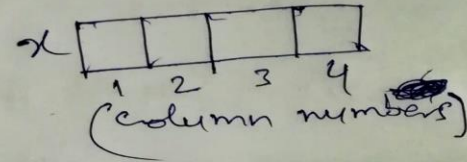 x
1 2 3 4
(column numbers)